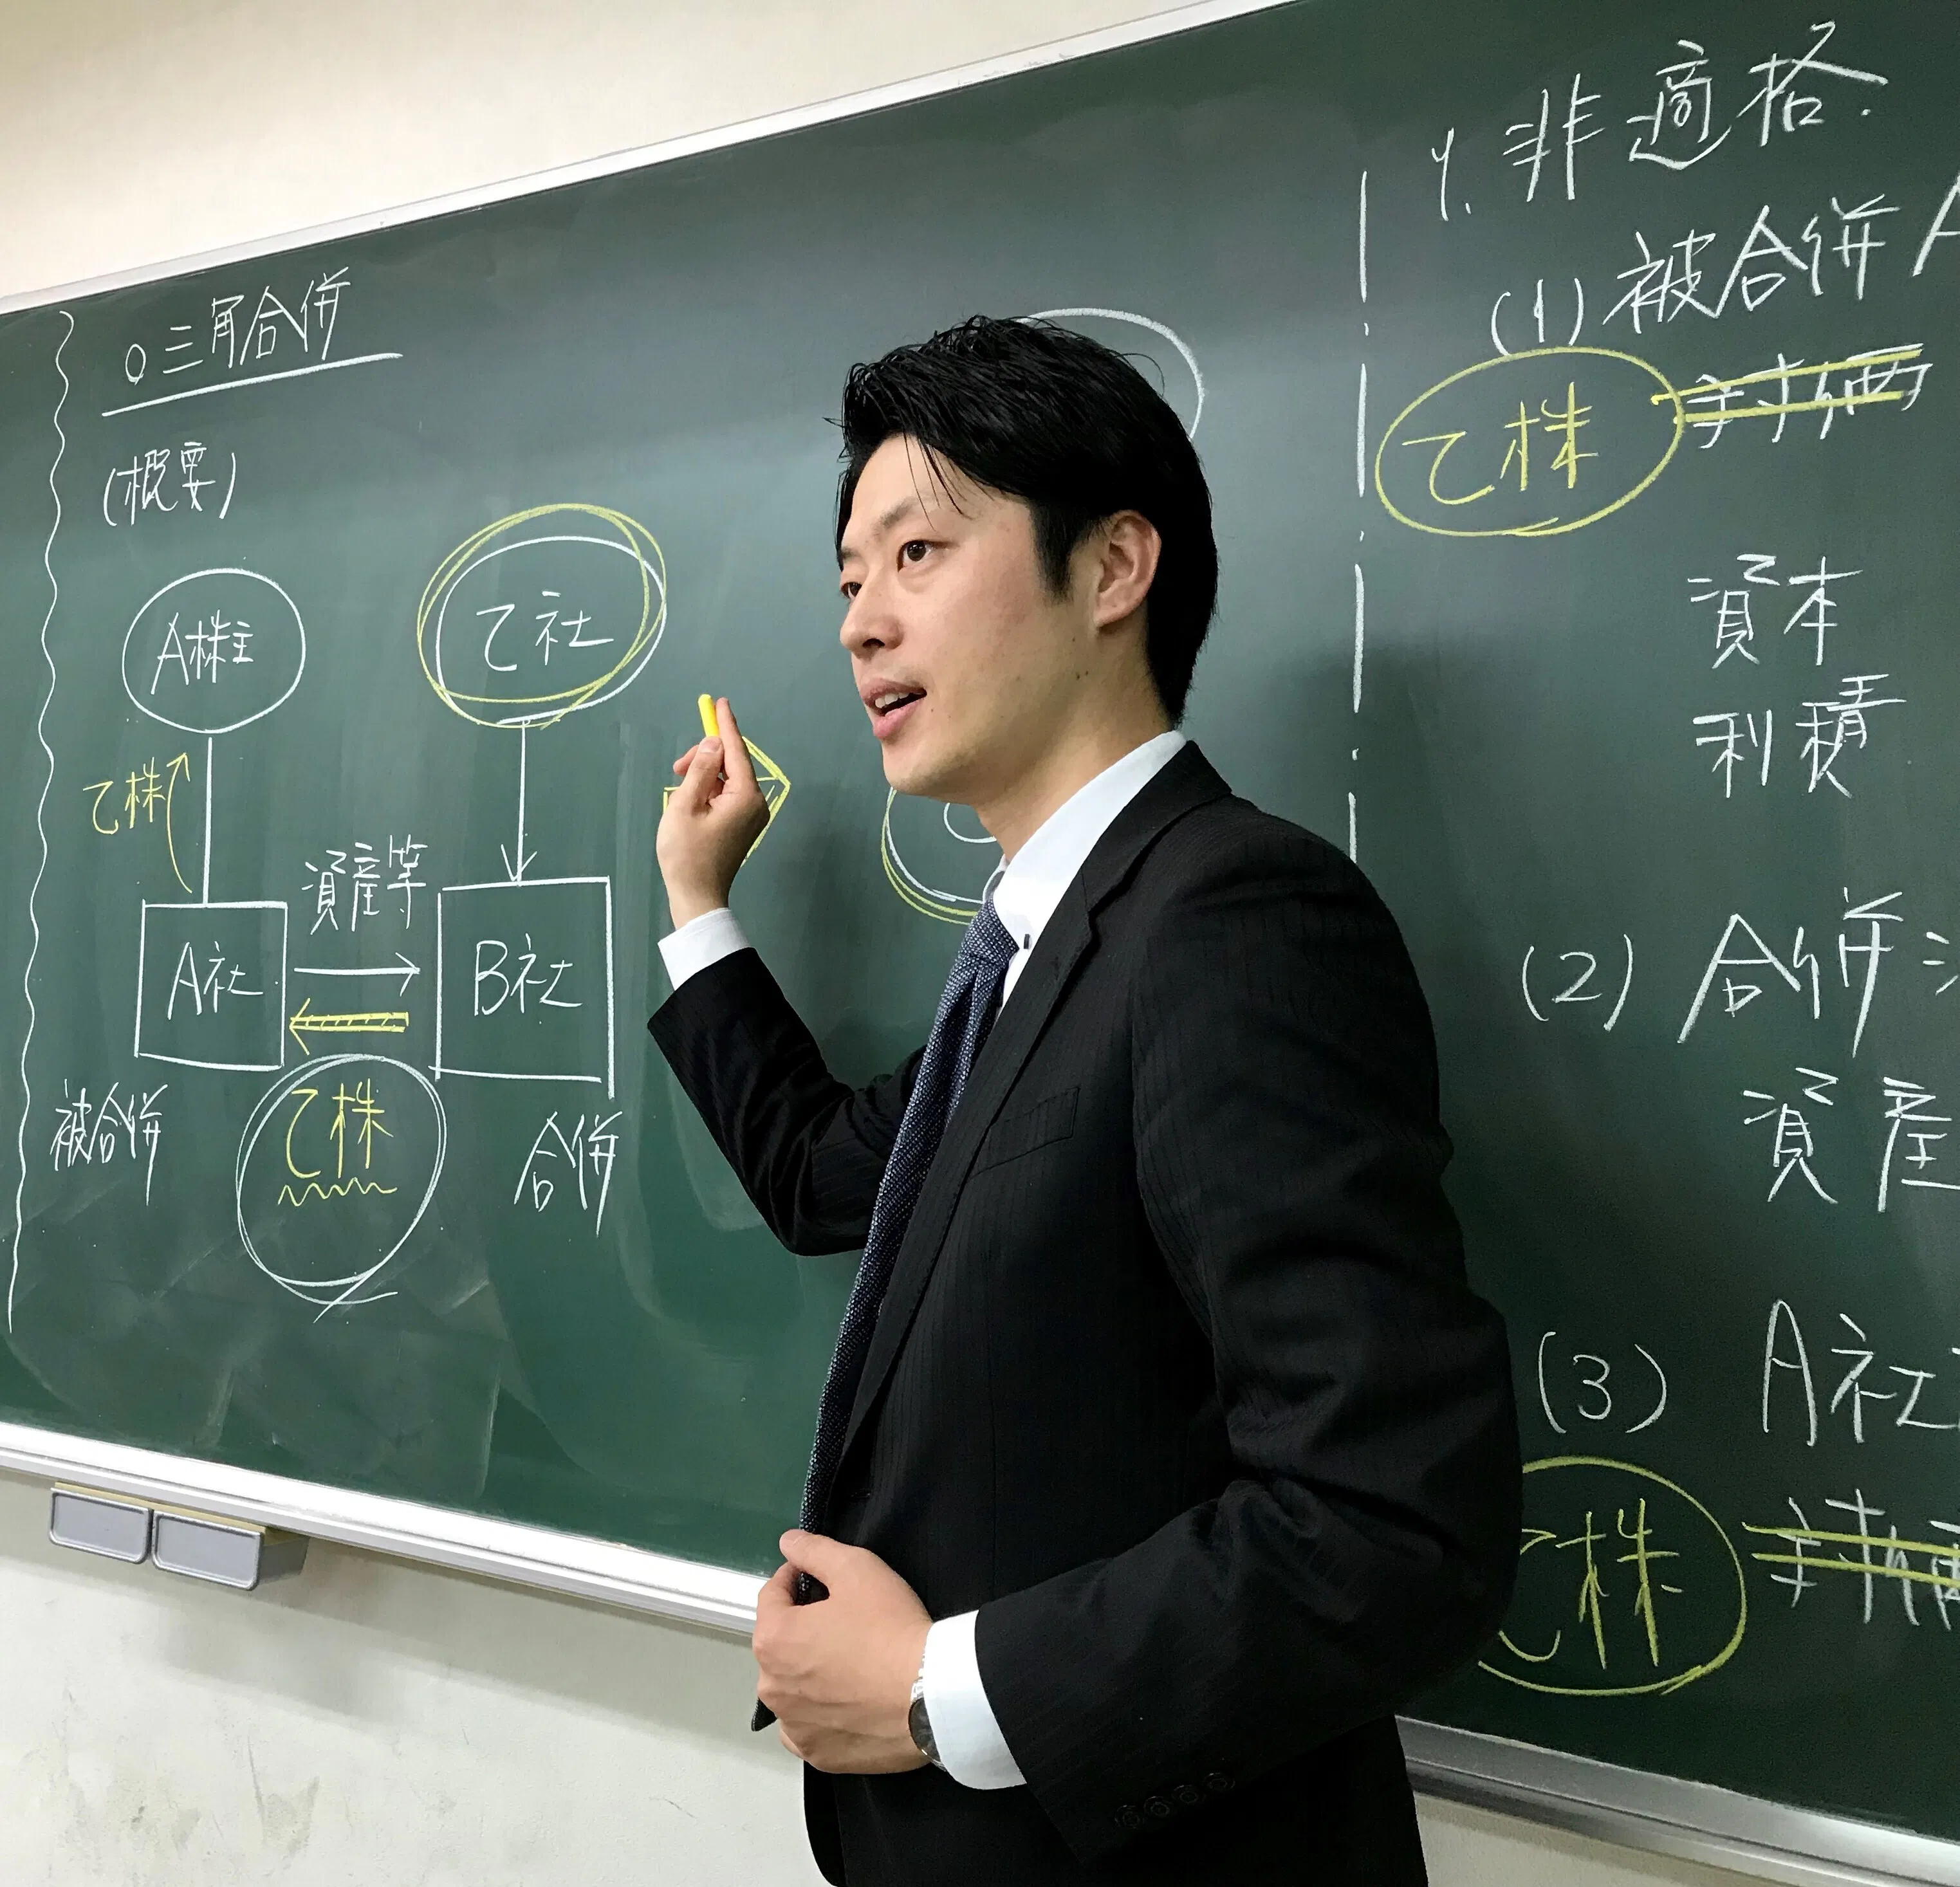 ○三角合併
(概要)
A株主
乙社
乙株
資産等
A社
B社
乙株
被合併
合併
1. 非適格.
(1) 被合併
乙株 対価
資本
利積
(2) 合併
資産
(3) A社
乙株 対価